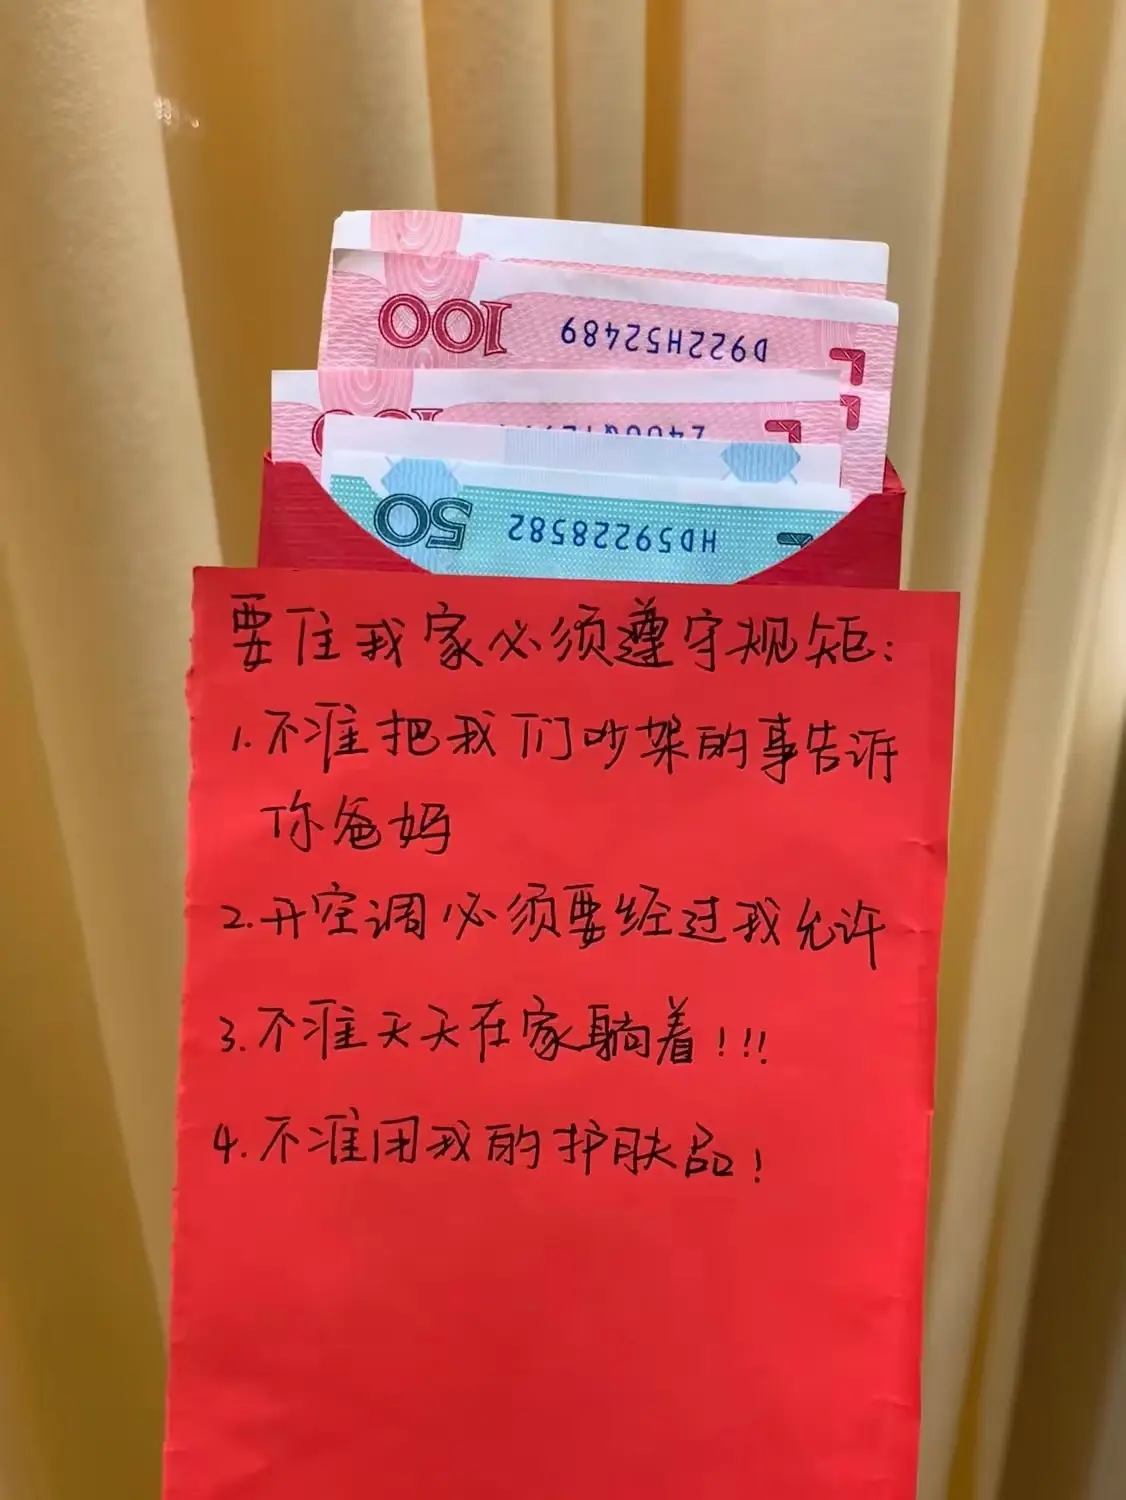 100 D922H52489
50 HD59228582
要住我家必须遵守规矩:
1.不准把我们吵架的事告诉
你爸妈
2.开空调必须要经过我允许
3.不准天天在家躺着!!!
4.不准用我的护肤品!